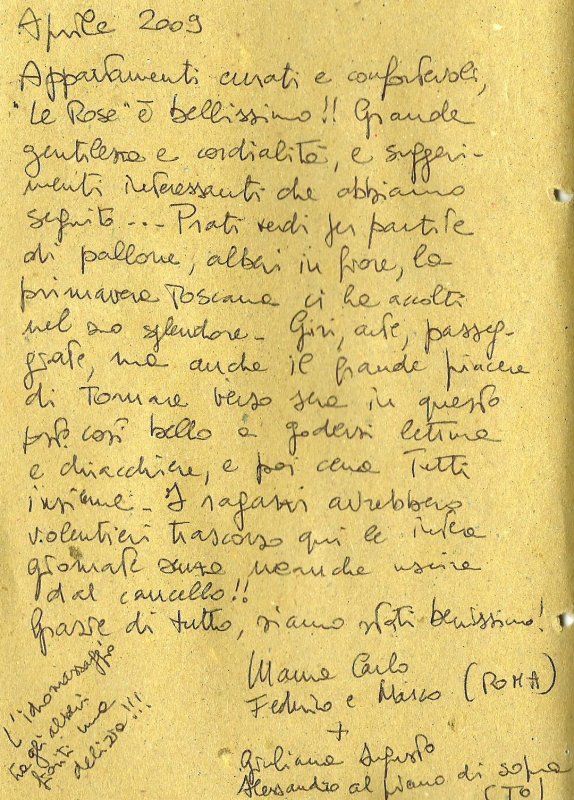 Aprile 2009
Appartamenti curati e confortevoli,
"Le Rose" è bellissimo!! Grande
gentilezza e cordialità, e suggeri-
menti interessanti che abbiamo
seguito --- Prati verdi per partite
di pallone, alberi in fiore, la
primavera Toscana ci ha accolti
nel suo splendore - Giri, arte, passeg-
giate, ma anche il grande piacere
di Tornare verso sera in questo
posto così bello a godersi lettura
e chiacchiere, e poi cena Tutti
insieme - I ragazzi avrebbero
volentieri trascorso qui le intere
giornate senza neanche uscire
dal cancello!!
Grazie di tutto, siamo stati benissimo!
Carlo
Federico e Marco (ROMA)
+
Giuliana Augusto
Alessandro al piano di sopra
(TO)
L'idromassaggio
tra gli alberi
fioriti una
delizia!!!